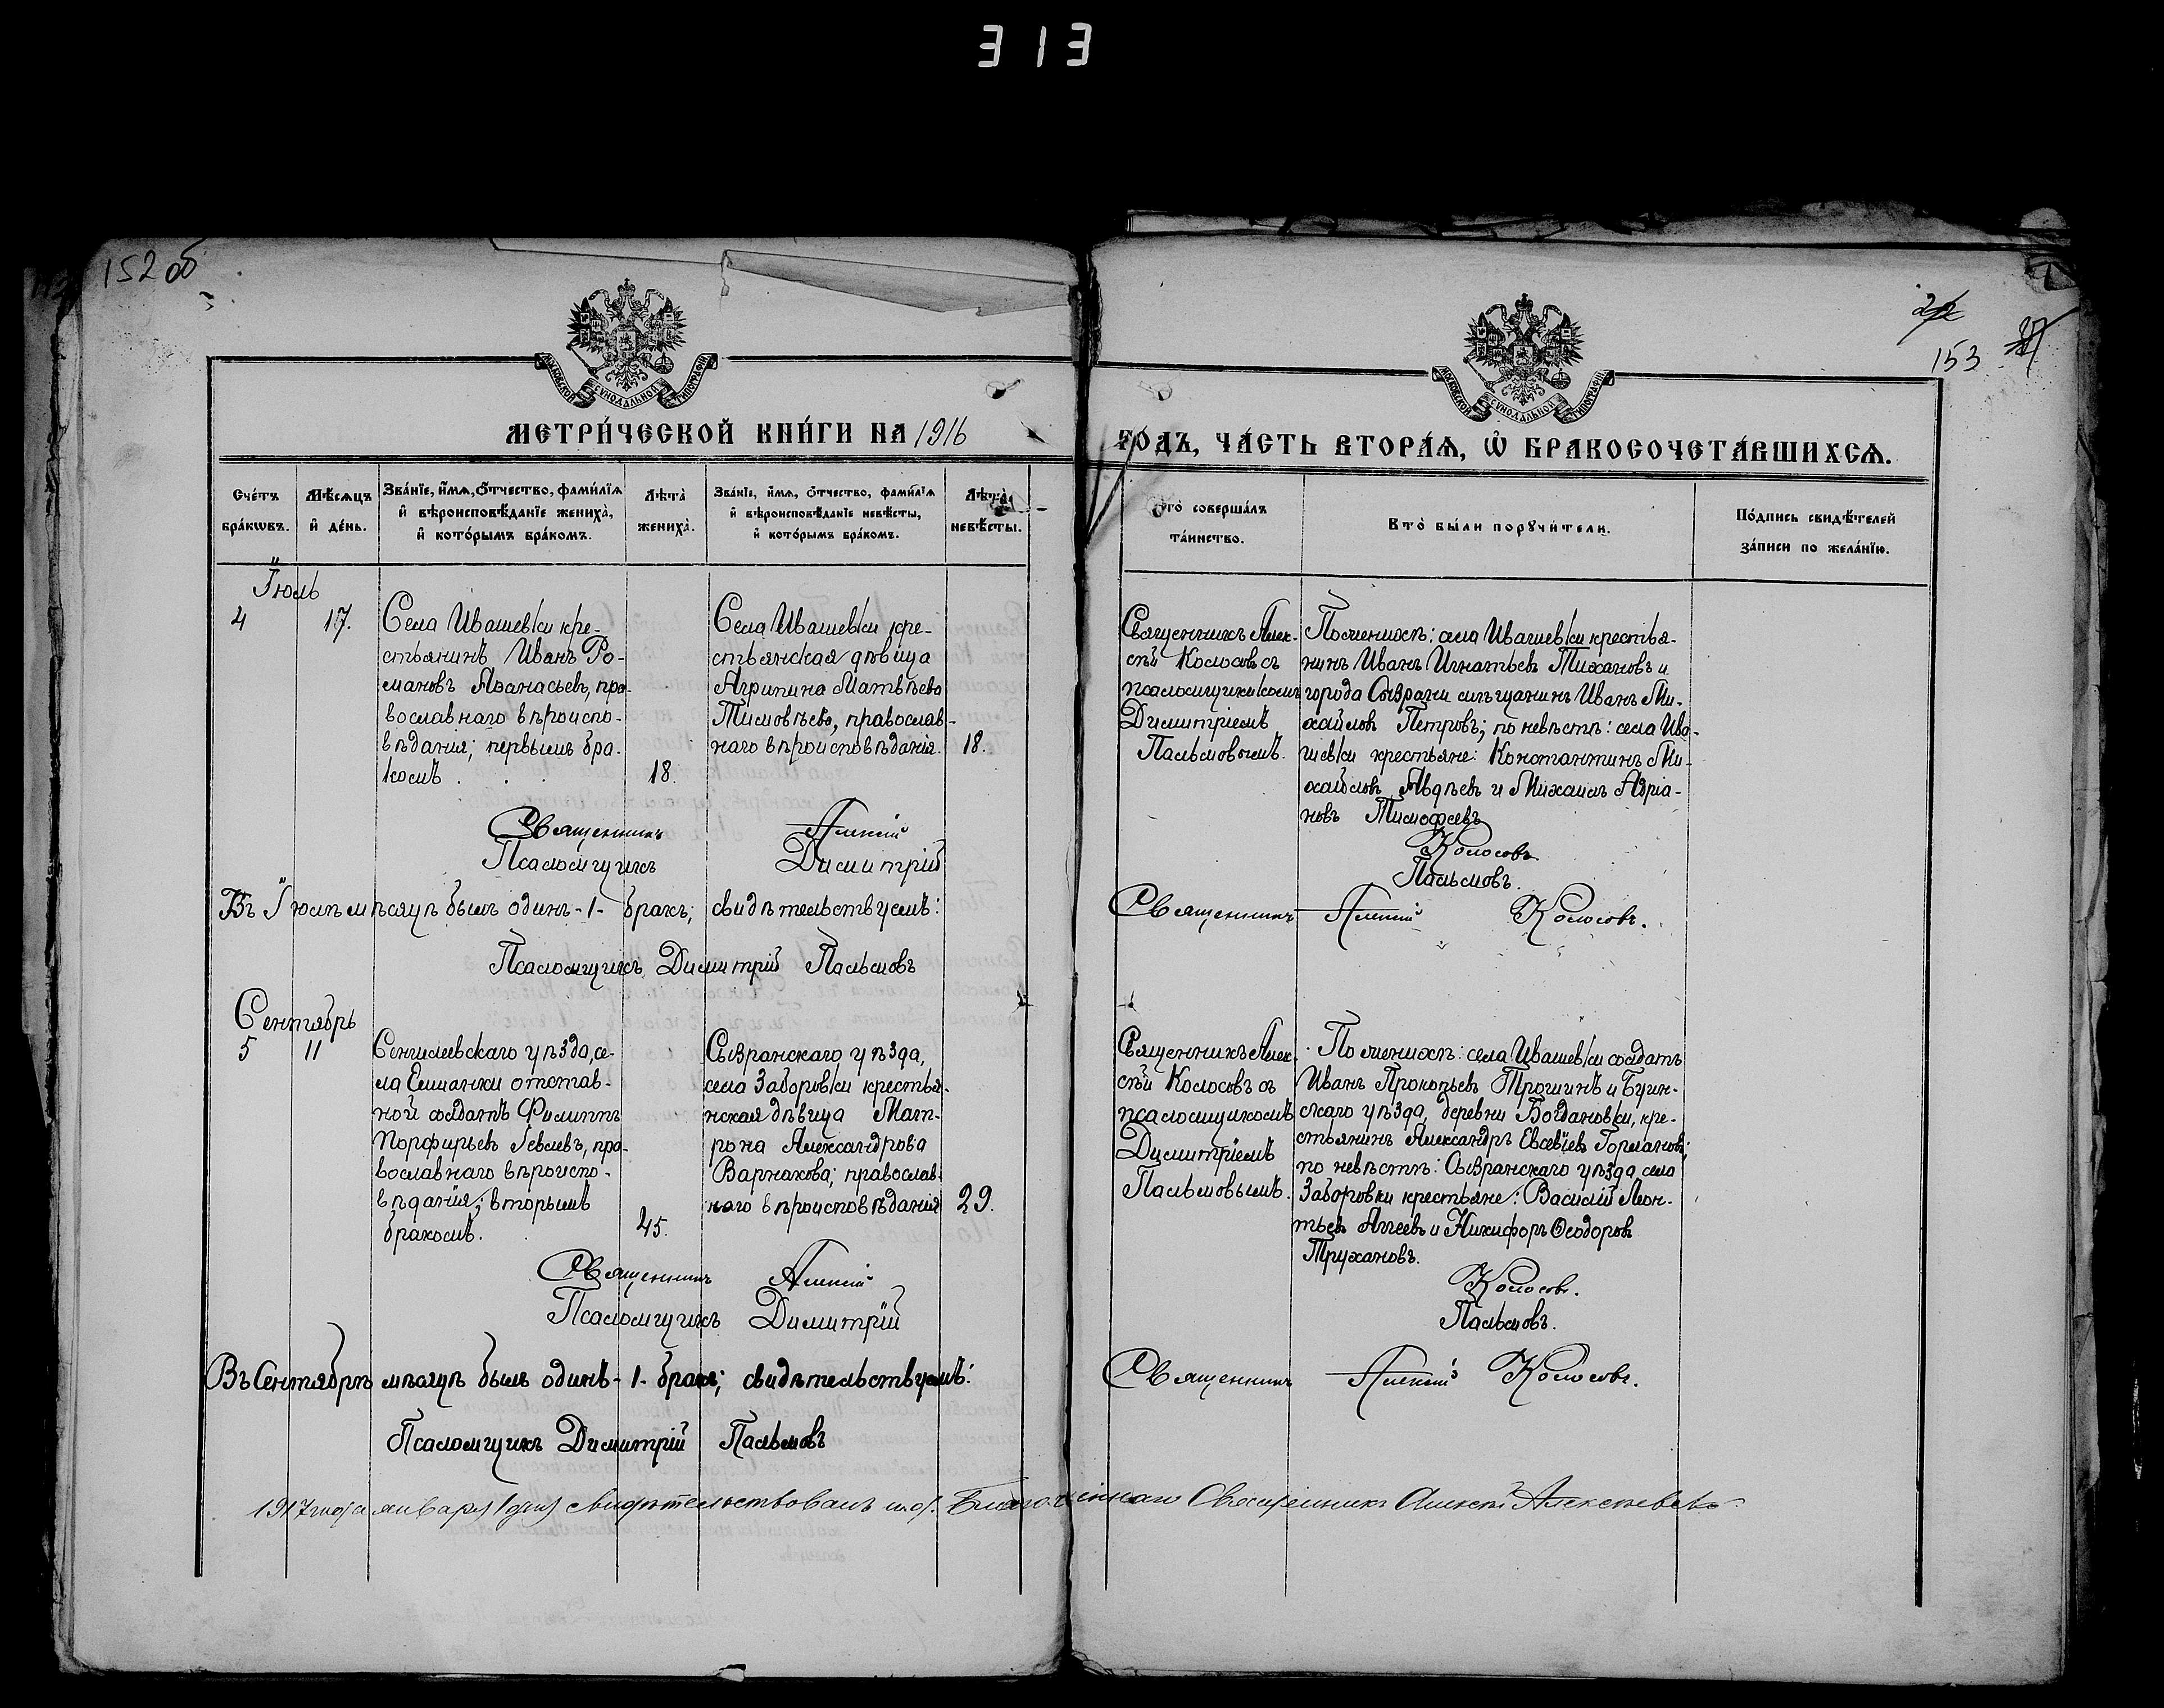 313
152 об
22
27
153
МОСКОВСКОЙ СѴНОДАЛЬНОЙ ТИПОГРАФІИ
МОСКОВСКОЙ СѴНОДАЛЬНОЙ ТИПОГРАФІИ
МЕТРИ́ЧЕСКОЙ КНИ́ГИ НА 1916
ГОДЪ, ЧА́СТЬ ВТОРА́Ѧ, Ѽ БРАКОСОЧЕТА́ВШИХСѦ.
Сче́тъ бра́кѡвъ.
Мѣ́сѧцъ и҆ де́нь.
Зва́нїе, и҆́мѧ, ѻ҆́тчество, фами́лїѧ и҆ вѣроисповѣ́данїе жениха̀, и҆ кото́рымъ бра́комъ.
Лѣта̀ жениха̀.
Зва́нїе, и҆́мѧ, ѻ҆́тчество, фами́лїѧ и҆ вѣроисповѣ́данїе невѣ́сты, и҆ кото́рымъ бра́комъ.
Лѣта̀ невѣ́сты.
Кто̀ соверша́лъ та́инство.
Кто̀ бы́ли порꙋчи́тели.
По́дпись свидѣ́телей за́писи по жела́нїю.
Іюль
4
17.
Села Ивашевки кре-
стьянинъ Иванъ Ро-
мановъ Аѳанасьевъ, пра-
вославнаго вѣроиспо-
вѣданія; первымъ бра-
комъ.
18.
Села Ивашевки кре-
стьянская дѣвица
Агрипина Матѳѣева
Тимовѣева, православ-
наго вѣроисповѣданія.
18.
Священникъ Алек-
сѣй Колосовъ съ
псаломщикомъ
Димитріемъ
Пальмовымъ.
По женихѣ: села Ивашевки крестья-
нинъ Иванъ Игнатьевъ Тихановъ и
города Сызрани мѣщанинъ Иванъ Ми-
хайловъ Петровъ; по невѣстѣ: села Ива-
шевки крестьяне: Константинъ Ми-
хайловъ Авдѣевъ и Михаилъ Адріа-
новъ Тимофеевъ
Священникъ Алексій Колосовъ.
Псаломщикъ Димитрій Пальмовъ.
Въ Іюлѣ мѣсяцѣ былъ одинъ -1- бракъ; свидѣтельствуемъ: Священникъ Алексій Колосовъ.
Псаломщикъ Димитрій Пальмовъ
Сентябрь
5
11
Сенгилеевскаго уѣзда, се-
ла Елшанки отстав-
ной солдатъ Филиппъ
Порфирьевъ Іевлевъ, пра-
вославнаго вѣроиспо-
вѣданія; вторымъ
бракомъ.
45.
Сызранскаго уѣзда,
села Заборовки крестья-
нская дѣвица Мат-
рона Александрова
Варнакова; православ-
наго вѣроисповѣданія
29.
Священникъ Алек-
сѣй Колосовъ съ
псаломщикомъ
Димитріемъ
Пальмовымъ.
По женихѣ: села Ивашевки солдатъ
Иванъ Прокопьевъ Трошинъ и Буин-
скаго уѣзда, деревни Богдановки, кре-
стьянинъ Александръ Евсевіевъ Гормановъ;
по невѣстѣ: Сызранскаго уѣзда, села
Заборовки крестьяне: Василій Леон-
тьевъ Аггеевъ и Никифоръ Ѳеодоровъ
Трухановъ.
Священникъ Алексій Колосовъ.
Псаломщикъ Димитрій Пальмовъ.
Въ Сентябрѣ мѣсяцѣ былъ одинъ -1- бракъ; свидѣтельствуемъ: Священникъ Алексій Колосовъ.
Псаломщикъ Димитрій Пальмовъ
1917 года января 1 дня свидѣтельствовалъ и.о. Благочиннаго Священникъ Алексѣй Алексѣевъ